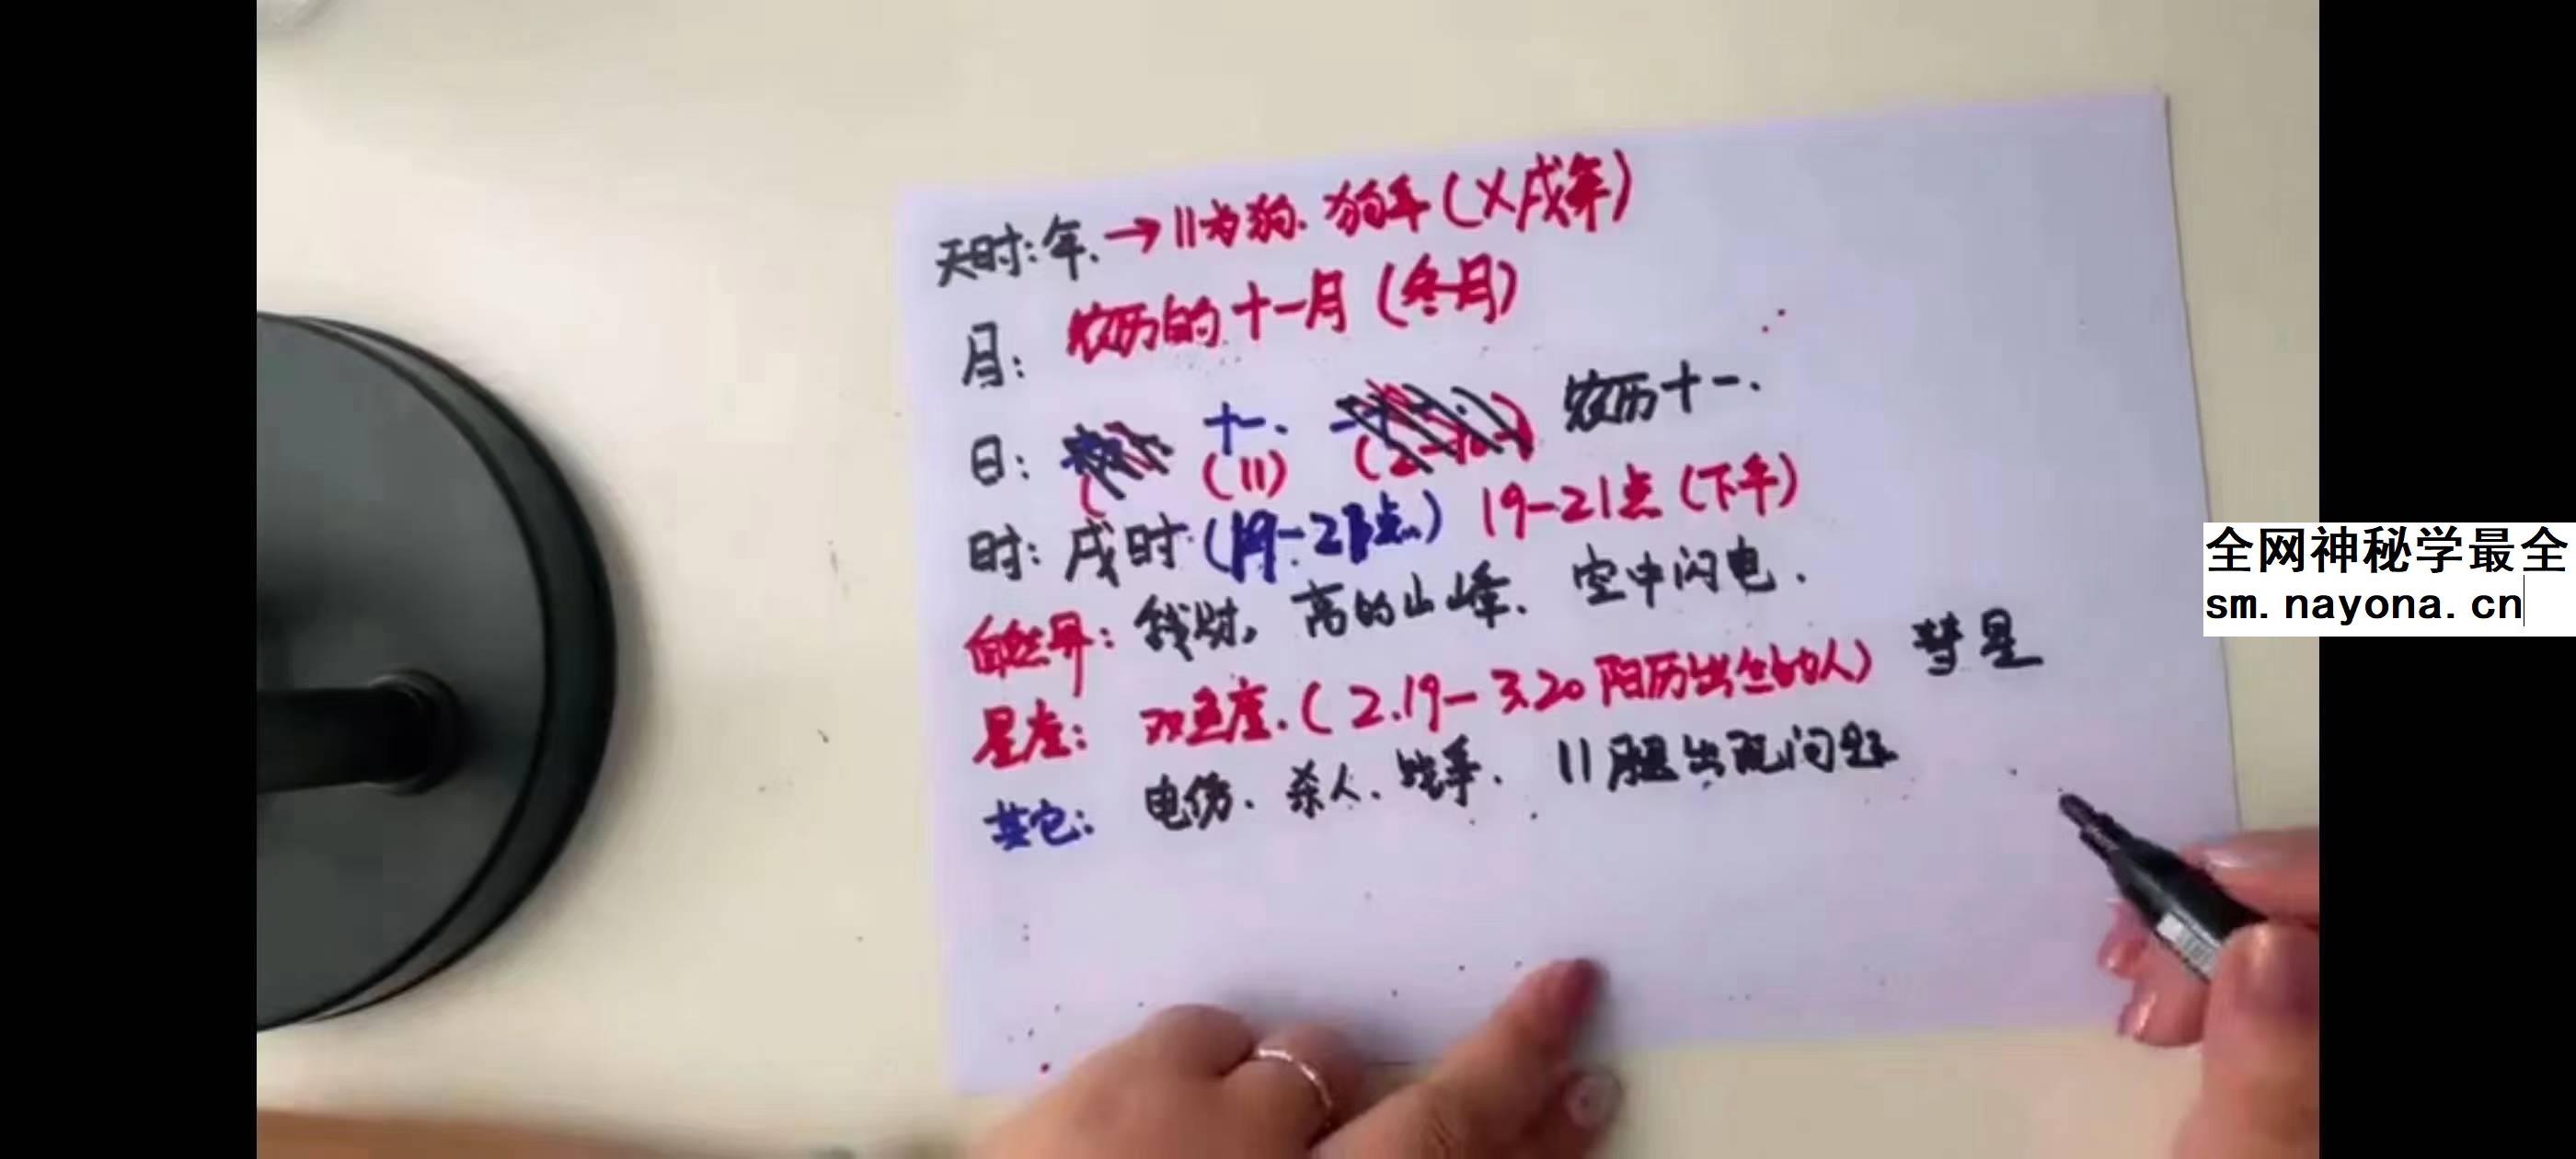 天时：年.→11为狗.狗年(X戌年)
月：农历的十一月(冬月)
日：十一.(11) 农历十一.
时：戌时(19-21点) 19-21点(下午)
自然界：钱财，高的山峰、空中闪电.
星座：双鱼座.(2.19-3.20阳历出生的人) 彗星
其它：电伤、杀人、战争、11腿出现问题
全网神秘学最全
sm.nayona.cn